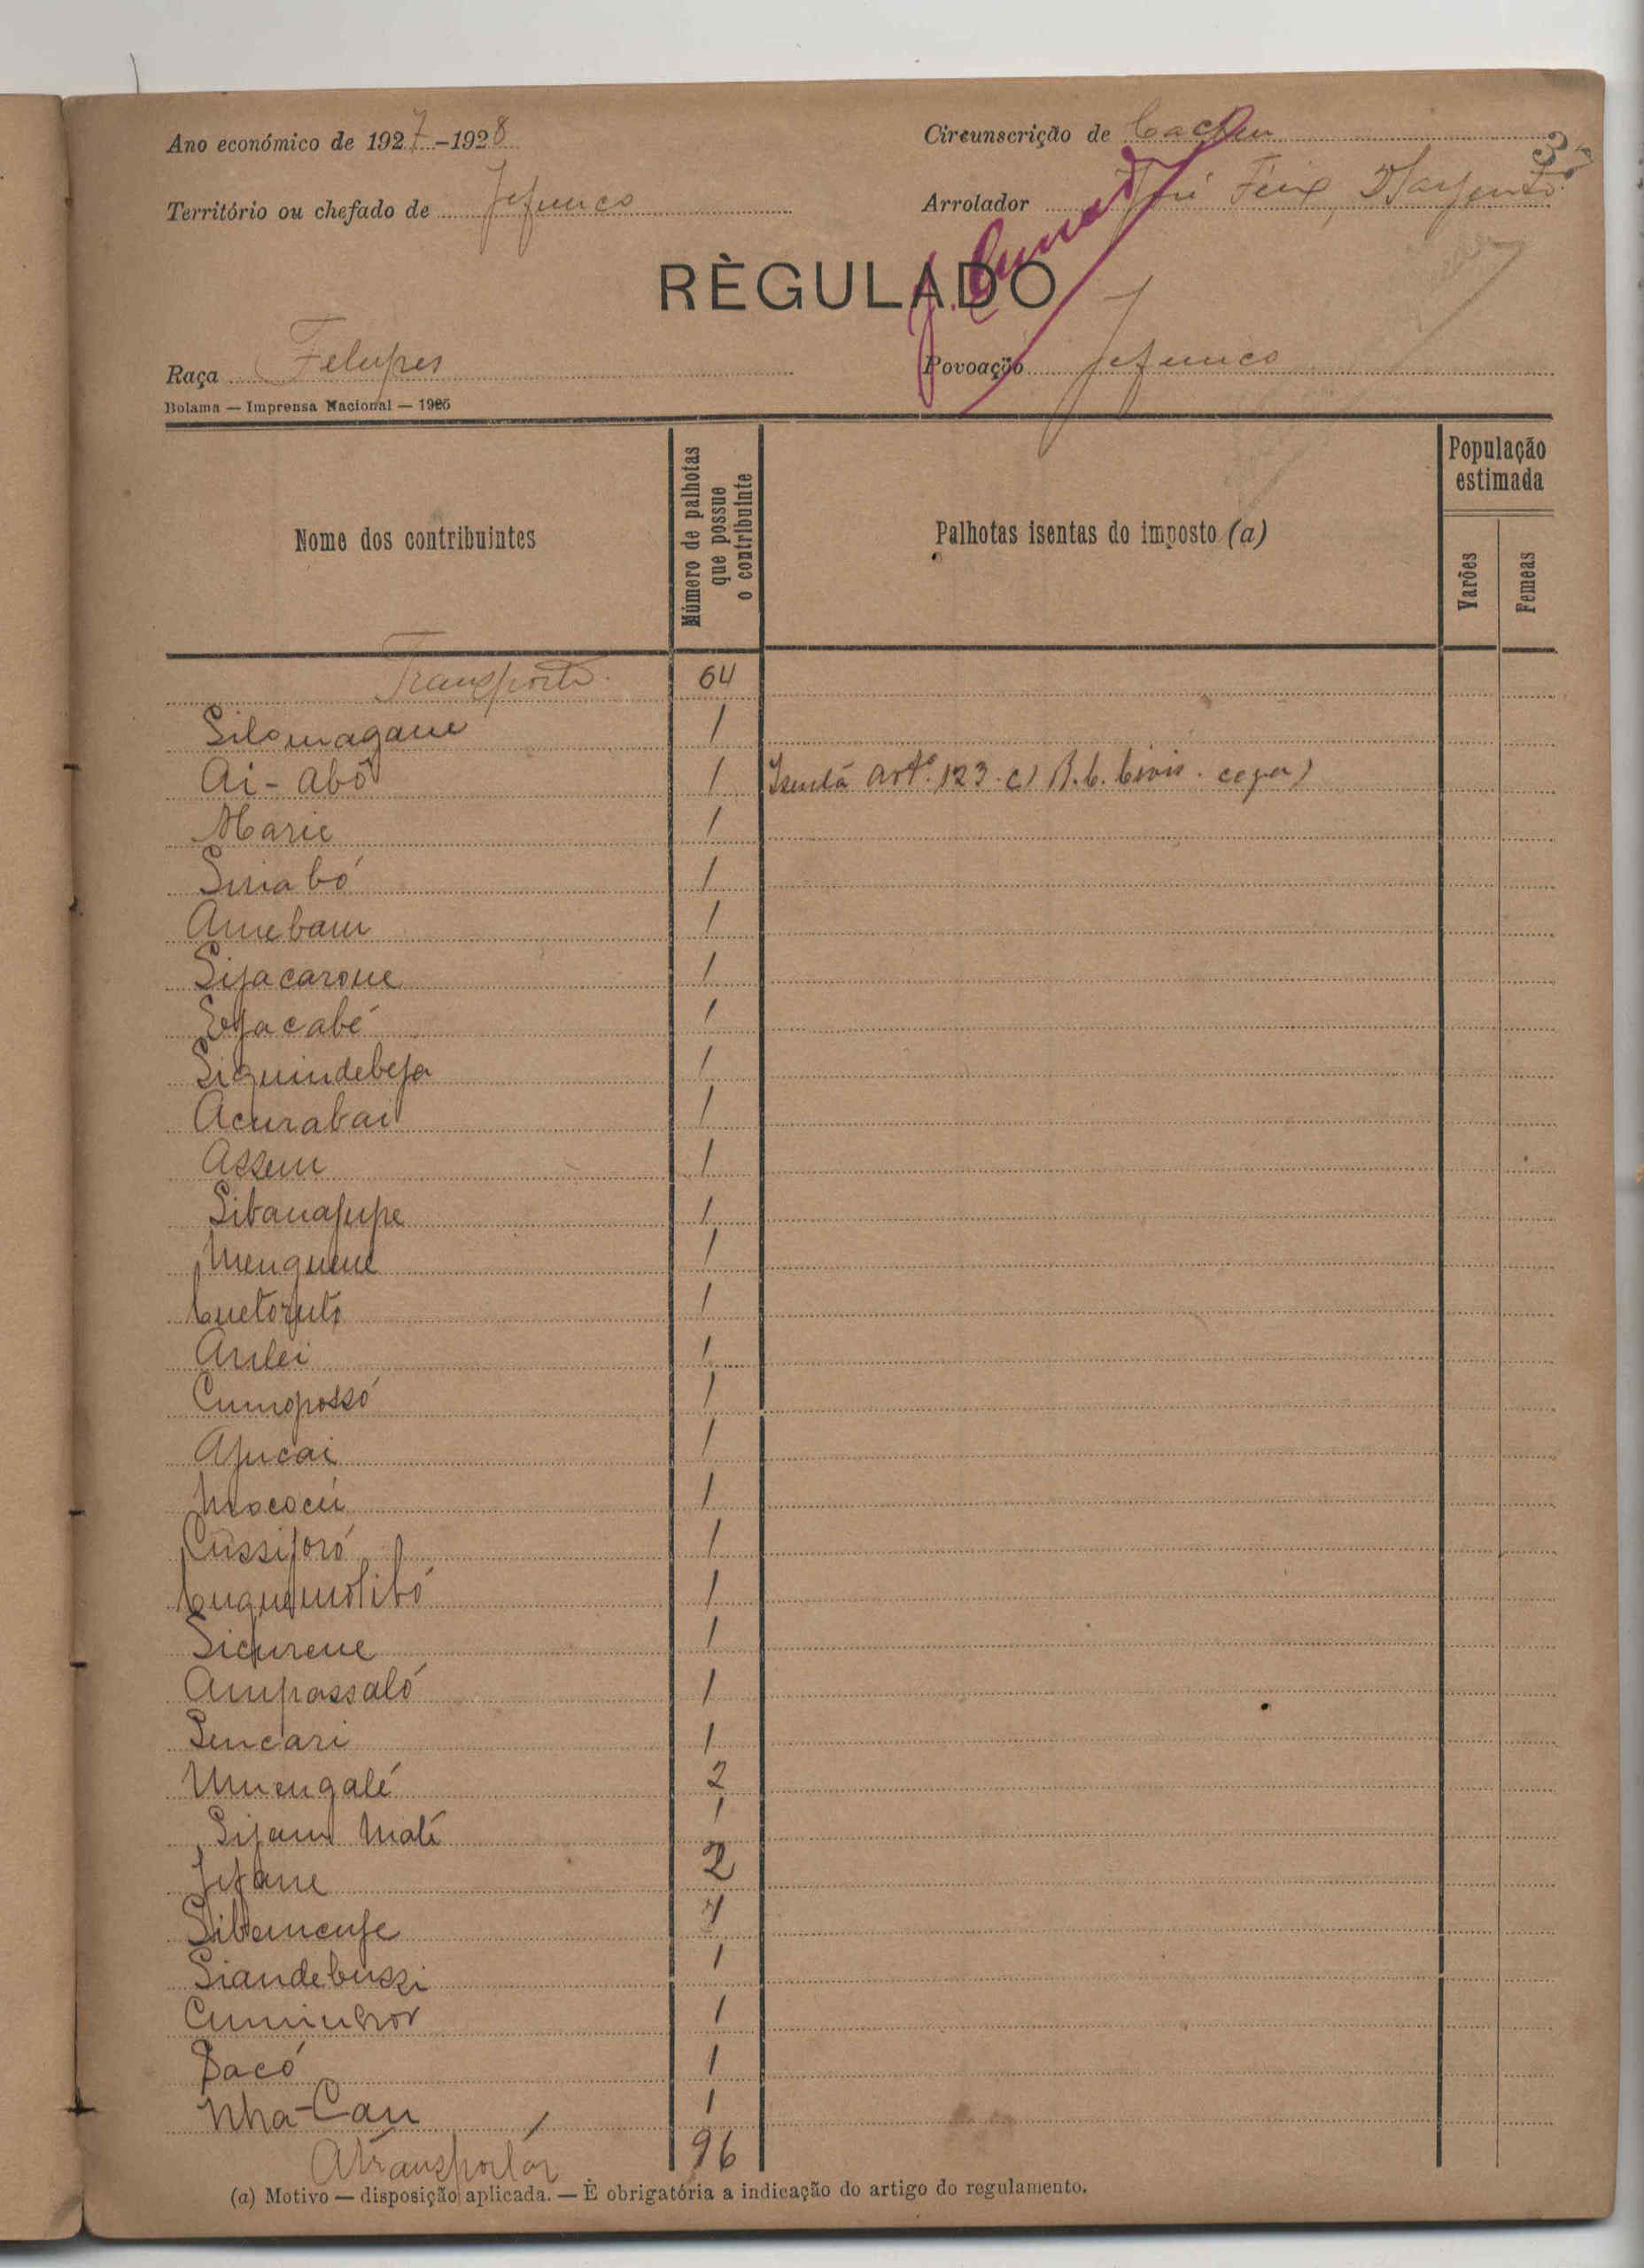 Ano económico de 1927-1928
Circunscrição de Cacheu
3
Território ou chefado de Jefunco
Arrolador José Feix, Sargento
RÈGULADO
Raça Felupes
Povoação Jefunco
Bolama — Imprensa Nacional — 1925
Nome dos contribuintes
Número de palhotas que possue o contribuinte
Palhotas isentas do imposto (a)
População estimada
Varões
Femeas
Transporte 64
Silomagane 1
Ai-abó 1 Isenta artº. 123. c)
Marie 1
Siriabó 1
Amebam 1
Sijacarone 1
Ejacabé 1
Siquindebeja 1
Acurabai 1
Assem 1
Sibanajupe 1
Menguene 1
1
Anlei 1
Cumopossó 1
Ajucai 1
Mococú 1
Cussiforó 1
1
Sicurene 1
Ampassaló 1
Sencari 1
Umengalé 2
Sijam Malé 1
Jifane 2
1
Siandebussi 1
1
Bacó 1
Nha-Cau 1
A transportar 96
(a) Motivo — disposição aplicada. — È obrigatória a indicação do artigo do regulamento.